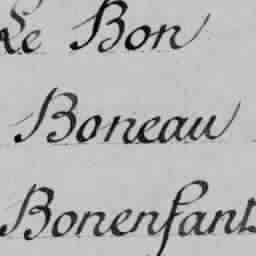 Le Bon
Boneau
Bonenfant